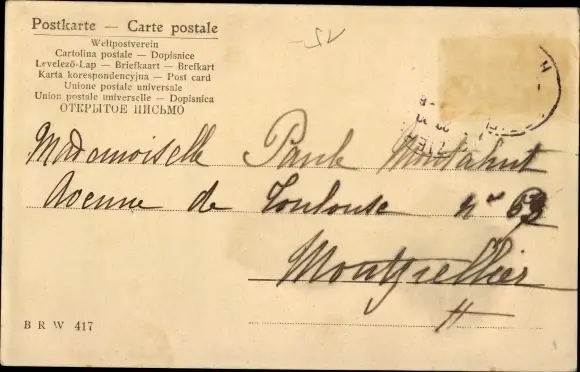 Postkarte — Carte postale
Weltpostverein
Cartolina postale — Dopisnice
Levelező-Lap — Briefkaart — Brefkort
Karta korespondencyjna — Post card
Unione postale universale
Union postale universelle — Dopisnica
ОТКРЫТОЕ ПИСЬМО
Mademoiselle Paule Montahut
Avenue de Toulouse n°
Montpellier
B R W 417